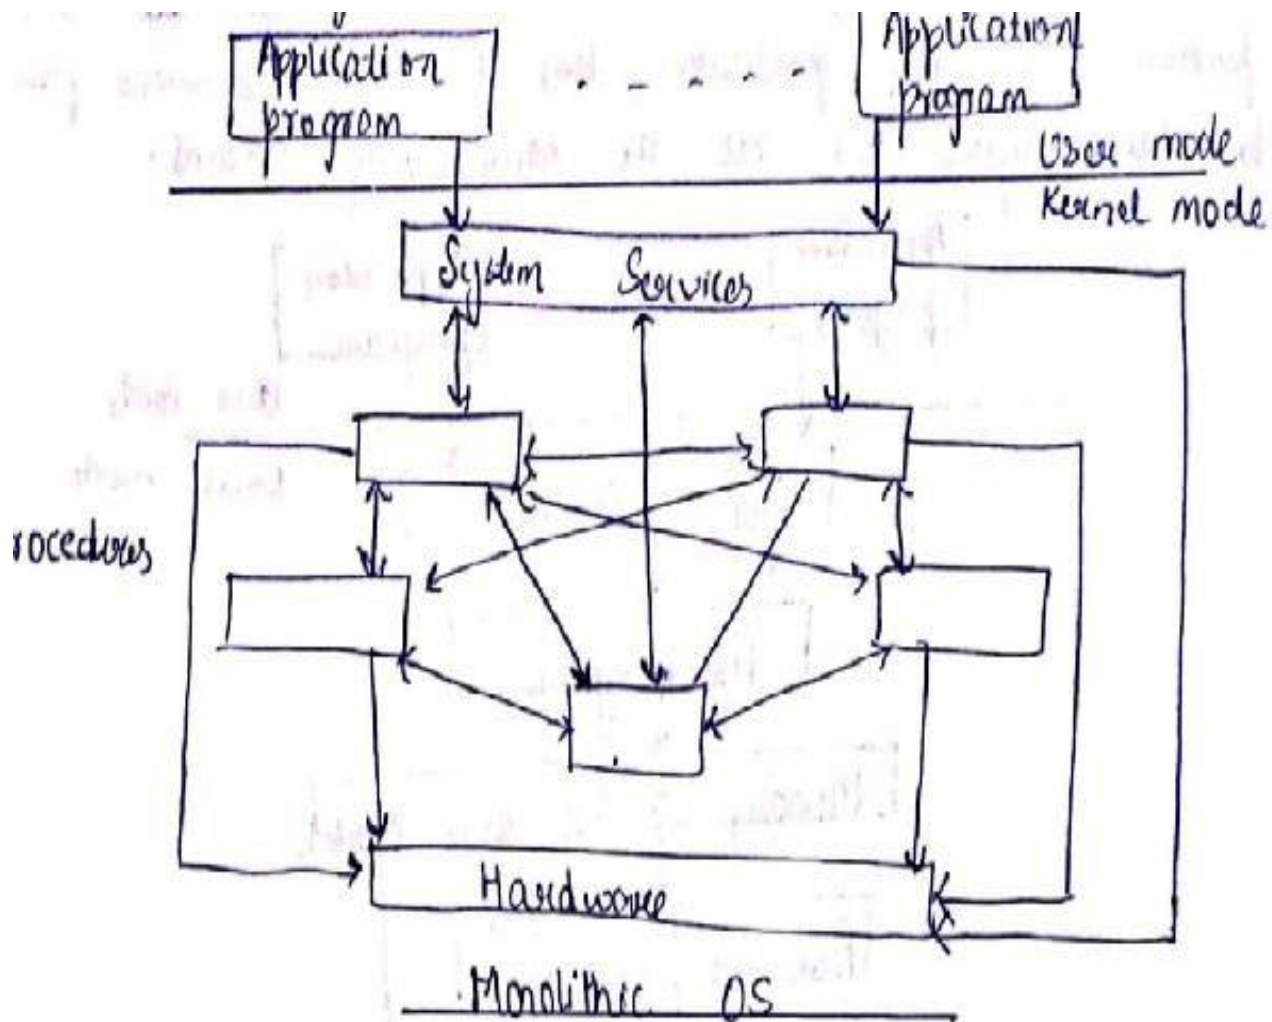 Application
program
Application
program
User mode
Kernel mode
System Services
rocedures
Hardware
Monolithic OS